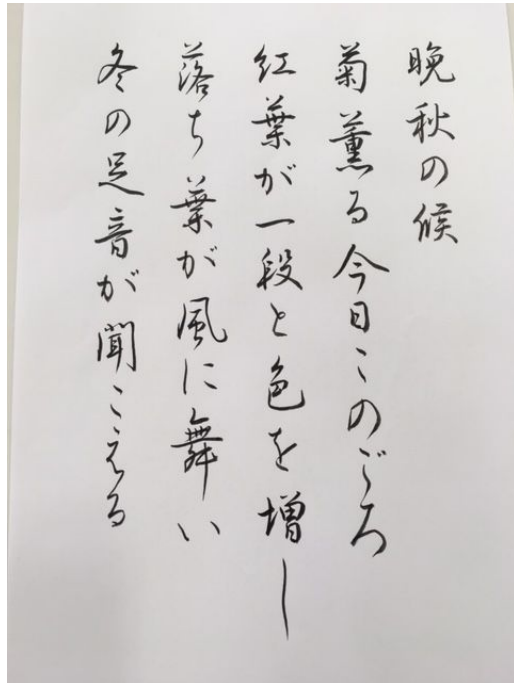 晩秋の候
菊薫る今日このごろ
紅葉が一段と色を増し
落ち葉が風に舞い
冬の足音が聞こえる